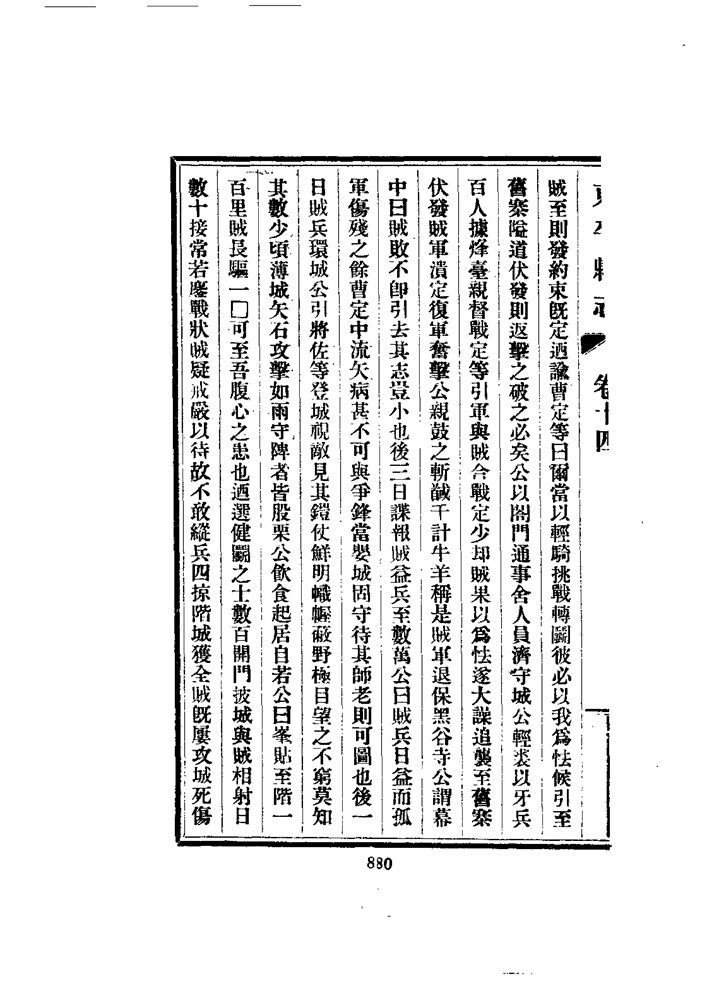 東平縣志 卷十四
賊至則發約束既定迺諭曹定等曰爾當以輕騎挑戰轉鬬彼必以我爲怯候引至
舊寨隘道伏發則返擊之破之必矣公以閤門通事舍人員濟守城公輕裘以牙兵
百人據烽臺親督戰定等引軍與賊合戰定少却賊果以爲怯遂大譟追襲至舊寨
伏發賊軍潰定復軍奮擊公親鼓之斬馘千計牛羊稱是賊軍退保黑谷寺公謂幕
中曰賊敗不卽引去其志豈小也後三日諜報賊益兵至數萬公曰賊兵日益而孤
軍傷殘之餘曹定中流矢病甚不可與爭鋒當嬰城固守待其師老則可圖也後一
日賊兵環城公引將佐等登城視敵見其鎧仗鮮明幟幄蔽野極目望之不窮莫知
其數少頃薄城矢石攻擊如雨守陴者皆股栗公飲食起居自若公曰峯貼至階一
百里賊長驅一□可至吾腹心之患也迺選健鬬之士數百開門披城與賊相射日
數十接常若鏖戰狀賊疑戒嚴以待故不敢縱兵四掠階城獲全賊既屢攻城死傷
880